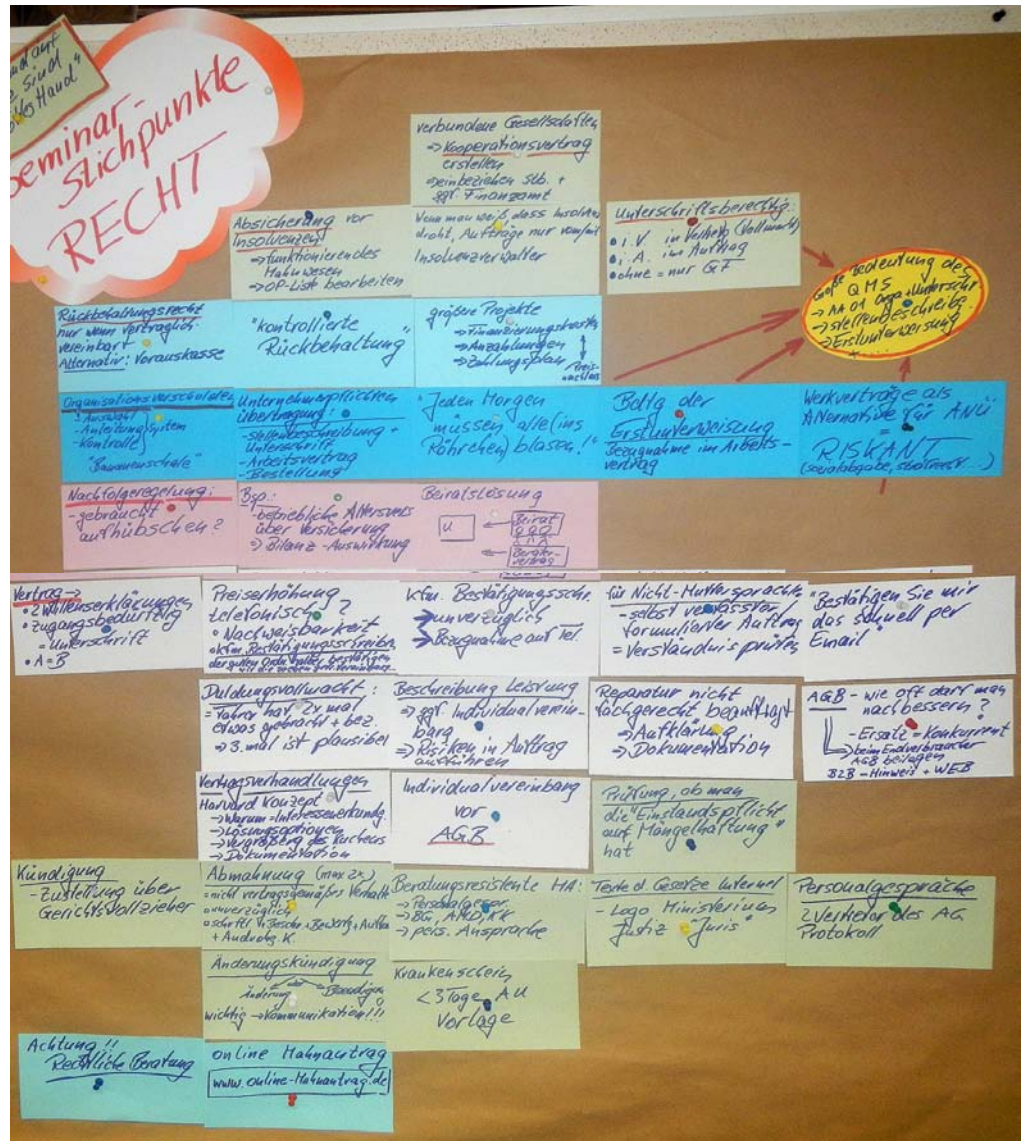 und auf
sind
Hand"
Seminar-
Stichpunkte
RECHT
verbundene Gesellschaften
=> Kooperationsvertrag
erstellen
=> einbeziehen Stb. +
ggf. Finanzamt
Absicherung vor
Insolvenzen!
=> funktionierendes
Mahnwesen
=> OP-Liste bearbeiten
Wenn man weiß, dass Insolvenz
droht, Aufträge nur vom/mit
Insolvenzverwalter
Unterschriftsberechtig.
• i.V. in Vertretg (Vollmacht)
• i.A. im Auftrag
• ohne = nur GF
Große Bedeutung des
QMS
-> AA 01 Orga + Unterschr.
-> Stellenbeschreibg.
-> Erstunterweisung
+ .....
Rückbehaltungsrecht
nur wenn vertraglich
vereinbart
Alternativ: Vorauskasse
"kontrollierte
Rückbehaltung"
größere Projekte
=> Finanzierungskosten
=> Anzahlungen
=> Zahlungsplan
Preis-
nachlass
Organisationsverschulden
- Auswahl
- Anleitung } System
- Kontrolle
"Bananenschale"
Unternehmerpflichten
übertragung:
- Stellenbeschreibung +
Unterschrift
- Arbeitsvertrag
- Bestellung
"Jeden Morgen
müssen alle (ins
Röhrchen) blasen!"
Beltg der
Erstunterweisung
Bezugnahme im Arbeits-
vertrag
Werkverträge als
Alternative für ANÜ
RISKANT
(Sozialabgabe, ...)
Nachfolgeregelung:
- gebraucht
aufhübschen?
Bsp.:
- betriebliche Altersvers
über Versicherung
=> Bilanz-Auswirkung
Beiratslösung
U
Beirat
Berater-
vertrag
Vertrag ->
• 2 Willenserklärungen
• zugangsbedürftig
= Unterschrift
• A = B
Preiserhöhung
telefonisch?
• Nachweisbarkeit
• kfm. Bestätigungsschreiben
der guten Ordnu halber bestätigen
wir die soeben getr. Vereinbarg
kfm. Bestätigungsschr.
> unverzüglich
> Bezugnahme auf Tel.
für Nicht-Muttersprachler
- selbst verfasster
formulierter Auftrag
= Verständnis prüfen
"Bestätigen Sie mir
das schnell per
Email"
Duldungsvollmacht:
= Fahrer hat 2x mal
etwas gebracht + bez.
=> 3. mal ist plausibel
Beschreibung Leistung
=> ggf. Individualverein-
barg
=> Risiken in Auftrag
aufführen
Reparatur nicht
fachgerecht beauftragt
=> Aufklärung
=> Dokumentation
AGB - wie oft darf man
nachbessern?
- Ersatz = Konkurrent
-> beim Endverbraucher
AGB beilegen
B2B - Hinweis + WEB
Vertragsverhandlungen
Harvard Konzept
-> Warum = Interessenerkundg.
-> Lösungsoptionen
-> Vergrößerg des Kuchens
-> Dokumentation
Individualvereinbarg
vor
AGB
Prüfung, ob man
die "Einstandspflicht
auf Mängelhaftung"
hat
Kündigung
- Zustellung über
Gerichtsvollzieher
Abmahnung (max 2x)
= nicht vertragsgemäßes Verhalten
• unverzüglich
• schriftl + Beschr. + Bewertg + Auffor
+ Androhg K.
Beratungsresistente MA:
-> Personalgespr.
-> BG, AMD, KK
-> pers. Ansprache
Texte d. Gesetze Internet
- Logo Ministerium
Justiz "Juris"
Personalgespräche
2 Vertreter des AG
Protokoll
Änderungskündigung
Änderung Beendigung
wichtig -> Kommunikation!!!
Krankenschein
<3 Tage AU
Vorlage
Achtung!!
Rechtliche Beratung
online Mahnantrag
www.online-Mahnantrag.de